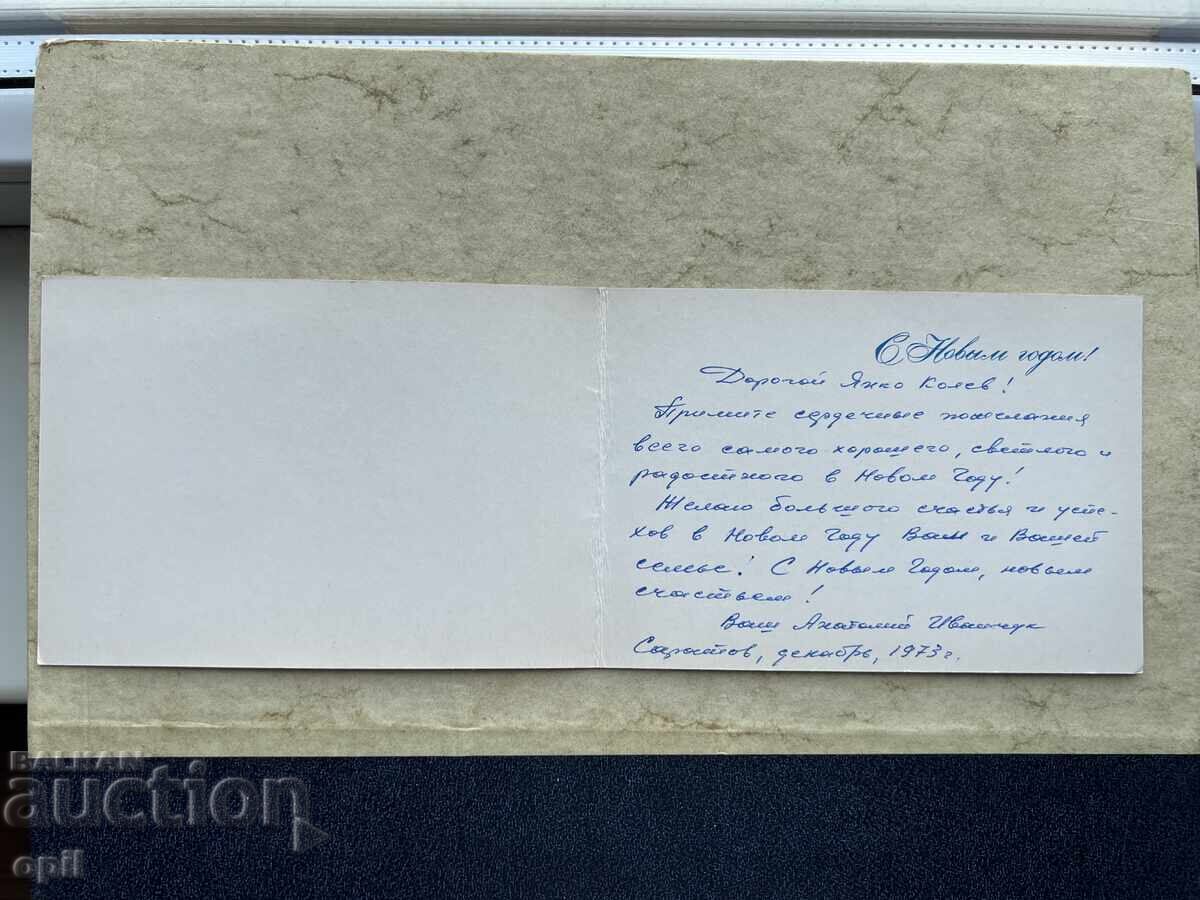 С Новым годом!
Дорогой Янко Колев!
Примите сердечные пожелания
всего самого хорошего, светлого и
радостного в Новом Году!
Желаю большого счастья и успе-
хов в Новом Году Вам и Вашей
семье! С Новым Годом, новым
счастьем!
Ваш Анатолий Иванчук
Саратов, декабрь, 1973 г.
BALKAN
auction
opil